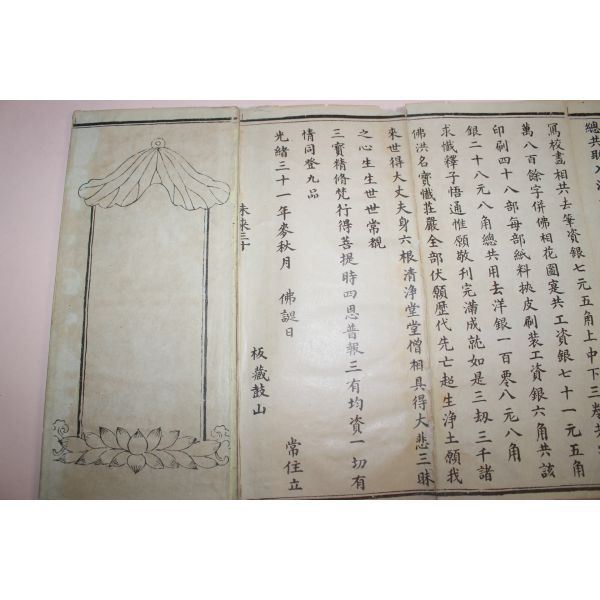 總共助入洋
寫校畫相共去筆資銀七元五角上中下三卷共三
萬八百餘字併佛相花圖寔共工資銀七十一元五角
印刷四十八部每部紙料挑皮刷裝工資銀六角共該
銀二十八元八角總共用去洋銀一百零八元八角
求懺釋子悟通惟願敬刊完滿成就如是三劫三千諸
佛洪名寶懺莊嚴全部伏願歷代先亡超生淨土願我
來世得大丈夫身六根清淨堂堂僧相具得大悲三昧
之心生生世世常覩
三寶精修梵行得菩提時四恩普報三有均資一切有
情同登九品
光緒三十一年麥秋月　佛誕日　常住立
板藏鼓山
未来三十